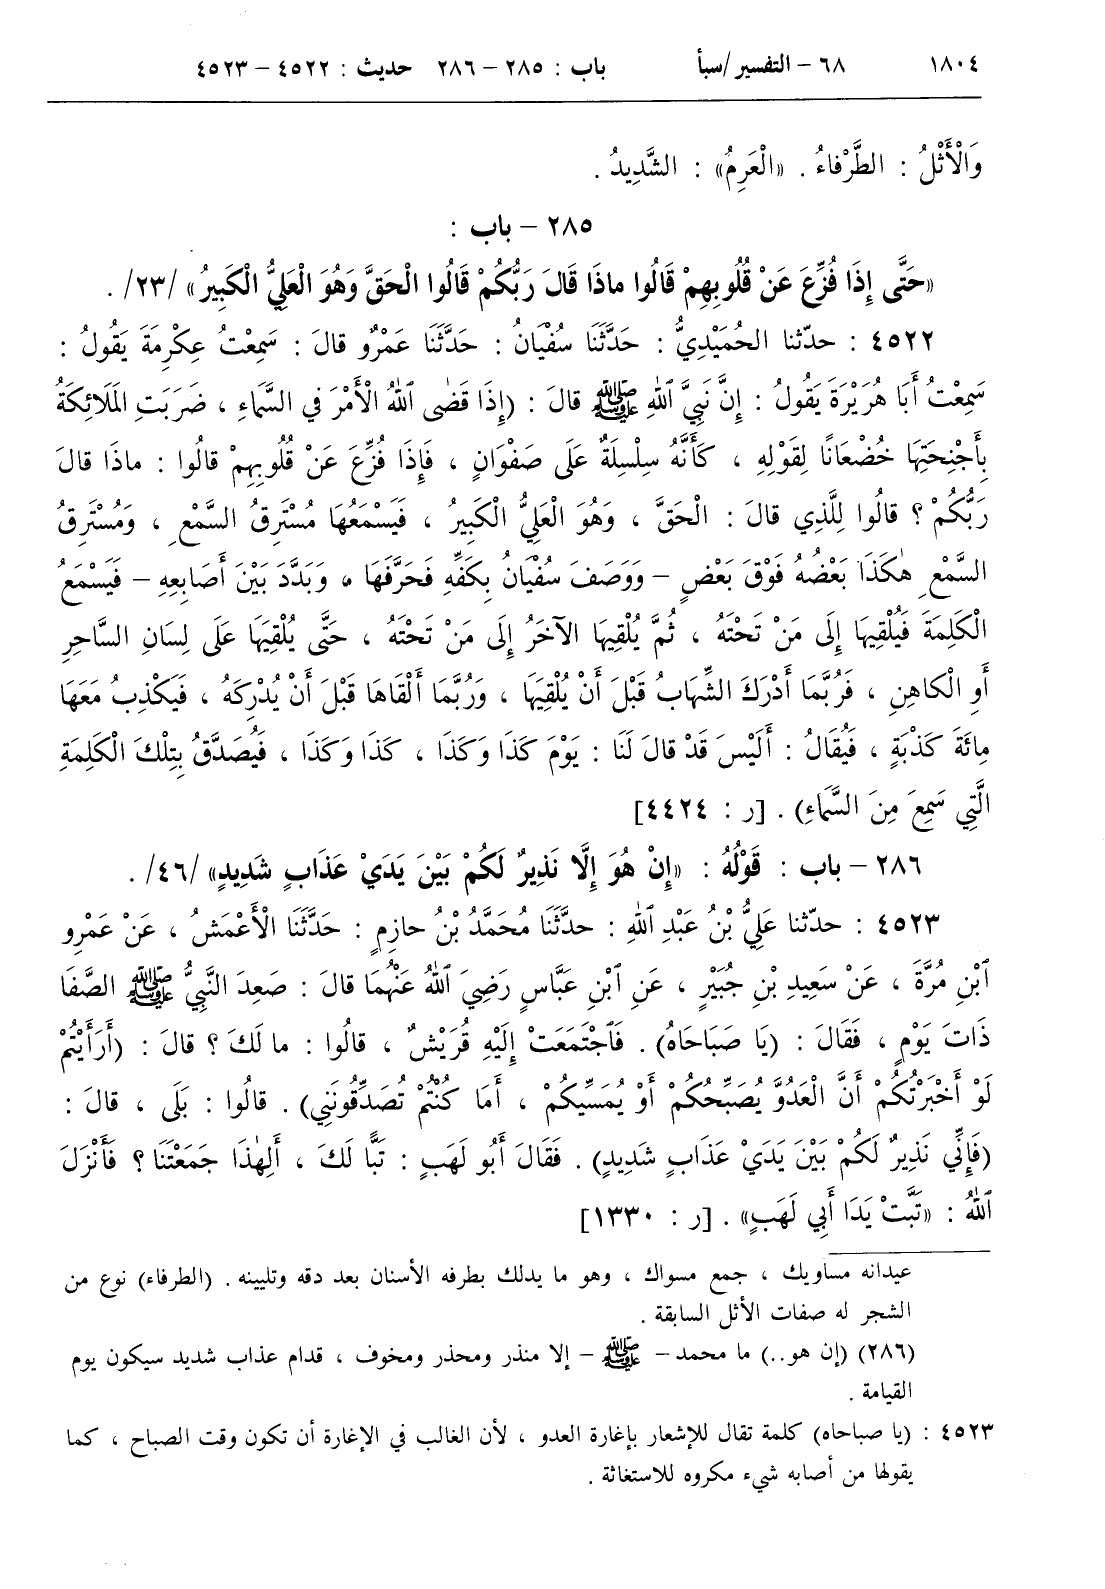 ١٨٠٤ ٦٨ – التفسير/سبأ باب : ٢٨٥ – ٢٨٦ حديث : ٤٥٢٢ – ٤٥٢٣
وَالْأَثْلُ : الطَّرْفاءُ . «الْعَرِمُ» : الشَّدِيدُ .
٢٨٥ – باب :
«حَتَّى إِذَا فُزِّعَ عَنْ قُلُوبِهِمْ قَالُوا ماذَا قَالَ رَبُّكُمْ قَالُوا الْحَقَّ وَهُوَ الْعَلِيُّ الْكَبِيرُ» /٢٣/ .
٤٥٢٢ : حدّثنا الحُمَيْدِيُّ : حَدَّثَنَا سُفْيَانُ : حَدَّثَنَا عَمْرٌو قالَ : سَمِعْتُ عِكْرِمَةَ يَقُولُ :
سَمِعْتُ أَبَا هُرَيْرَةَ يَقُولُ : إِنَّ نَبِيَّ ٱللهِ ﷺ قالَ : (إِذَا قَضٰى ٱللهُ الْأَمْرَ في السَّمَاءِ ، ضَرَبَتِ المَلَائِكَةُ
بِأَجْنِحَتِهَا خُضْعَانًا لِقَوْلِهِ ، كَأَنَّهُ سِلْسِلَةٌ عَلَى صَفْوَانٍ ، فَإِذَا فُزِّعَ عَنْ قُلُوبِهِمْ قالُوا : ماذَا قالَ
رَبُّكُمْ ؟ قالُوا لِلَّذِي قالَ : الْحَقَّ ، وَهُوَ الْعَلِيُّ الْكَبِيرُ ، فَيَسْمَعُهَا مُسْتَرِقُ السَّمْعِ ، وَمُسْتَرِقُ
السَّمْعِ هٰكَذَا بَعْضُهُ فَوْقَ بَعْضٍ – وَوَصَفَ سُفْيَانُ بِكَفِّهِ فَحَرَّفَهَا ، وَبَدَّدَ بَيْنَ أَصَابِعِهِ – فَيَسْمَعُ
الْكَلِمَةَ فَيُلْقِيهَا إِلَى مَنْ تَحْتَهُ ، ثُمَّ يُلْقِيهَا الآخَرُ إِلَى مَنْ تَحْتَهُ ، حَتَّى يُلْقِيَهَا عَلَى لِسَانِ السَّاحِرِ
أَوِ الْكاهِنِ ، فَرُبَّمَا أَدْرَكَ الشِّهَابُ قَبْلَ أَنْ يُلْقِيَهَا ، وَرُبَّمَا أَلْقَاهَا قَبْلَ أَنْ يُدْرِكَهُ ، فَيَكْذِبُ مَعَهَا
مِائَةَ كَذْبَةٍ ، فَيُقَالُ : أَلَيْسَ قَدْ قالَ لَنَا : يَوْمَ كَذَا وَكَذَا ، كَذَا وَكَذَا ، فَيُصَدَّقُ بِتِلْكَ الْكَلِمَةِ
الَّتِي سَمِعَ مِنَ السَّمَاءِ) . [ر : ٤٤٢٤]
٢٨٦ – باب : قَوْلُهُ : «إِنْ هُوَ إِلَّا نَذِيرٌ لَكُمْ بَيْنَ يَدَيْ عَذَابٍ شَدِيدٍ» /٤٦/ .
٤٥٢٣ : حدّثنا عَلِيُّ بْنُ عَبْدِ ٱللهِ : حدَّثَنَا مُحَمَّدُ بْنُ حازِمٍ : حَدَّثَنَا الْأَعْمَشُ ، عَنْ عَمْرِو
ٱبْنِ مُرَّةَ ، عَنْ سَعِيدِ بْنِ جُبَيْرٍ ، عَنِ ٱبْنِ عَبَّاسٍ رَضِيَ ٱللهُ عَنْهُمَا قالَ : صَعِدَ النَّبِيُّ ﷺ الصَّفَا
ذَاتَ يَوْمٍ ، فَقَالَ : (يَا صَبَاحَاهُ) . فَٱجْتَمَعَتْ إِلَيْهِ قُرَيْشٌ ، قالُوا : ما لَكَ ؟ قالَ : (أَرَأَيْتُمْ
لَوْ أَخْبَرْتُكُمْ أَنَّ الْعَدُوَّ يُصَبِّحُكُمْ أَوْ يُمَسِّيكُمْ ، أَمَا كُنْتُمْ تُصَدِّقُونَنِي) . قالُوا : بَلَى ، قالَ :
(فَإِنِّي نَذِيرٌ لَكُمْ بَيْنَ يَدَيْ عَذَابٍ شَدِيدٍ) . فَقَالَ أَبُو لَهَبٍ : تَبًّا لَكَ ، أَلِهٰذَا جَمَعْتَنَا ؟ فَأَنْزَلَ
ٱللهُ : «تَبَّتْ يَدَا أَبِي لَهَبٍ» . [ر : ١٣٣٠]
عيدانه مساويك ، جمع مسواك ، وهو ما يدلك بطرفه الأسنان بعد دقه وتليينه . (الطرفاء) نوع من
الشجر له صفات الأثل السابقة .
(٢٨٦) (إن هو..) ما محمد – ﷺ – إلا منذر ومحذر ومخوف ، قدام عذاب شديد سيكون يوم
القيامة .
٤٥٢٣ : (يا صباحاه) كلمة تقال للإشعار بإغارة العدو ، لأن الغالب في الإغارة أن تكون وقت الصباح ، كما
يقولها من أصابه شيء مكروه للاستغاثة .